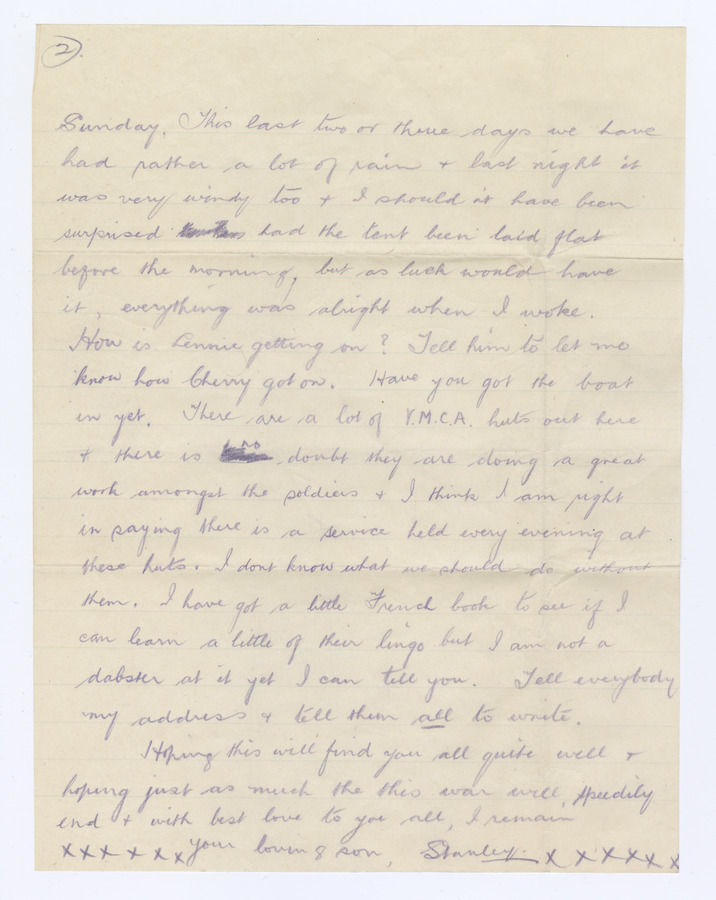 2.
Sunday. This last two or three days we have
had rather a lot of rain & last night it
was very windy too & I should n't have been
surprised had the tent been laid flat
before the morning, but as luck would have
it, everything was alright when I woke.
How is Lennie getting on? Tell him to let me
know how Cherry got on. Have you got the boat
in yet. There are a lot of Y.M.C.A. huts out here
& there is no doubt they are doing a great
work amongst the soldiers & I think I am right
in saying there is a service held every evening at
these huts. I dont know what we should do without
them. I have got a little French book to see if I
can learn a little of their lingo but I am not a
dabster at it yet I can tell you. Tell everybody
my address & tell them all to write.
Hoping this will find you all quite well &
hoping just as much the this war will, speedily
end & with best love to you all, I remain
x x x x x x your loving son, Stanley. x x x x x x